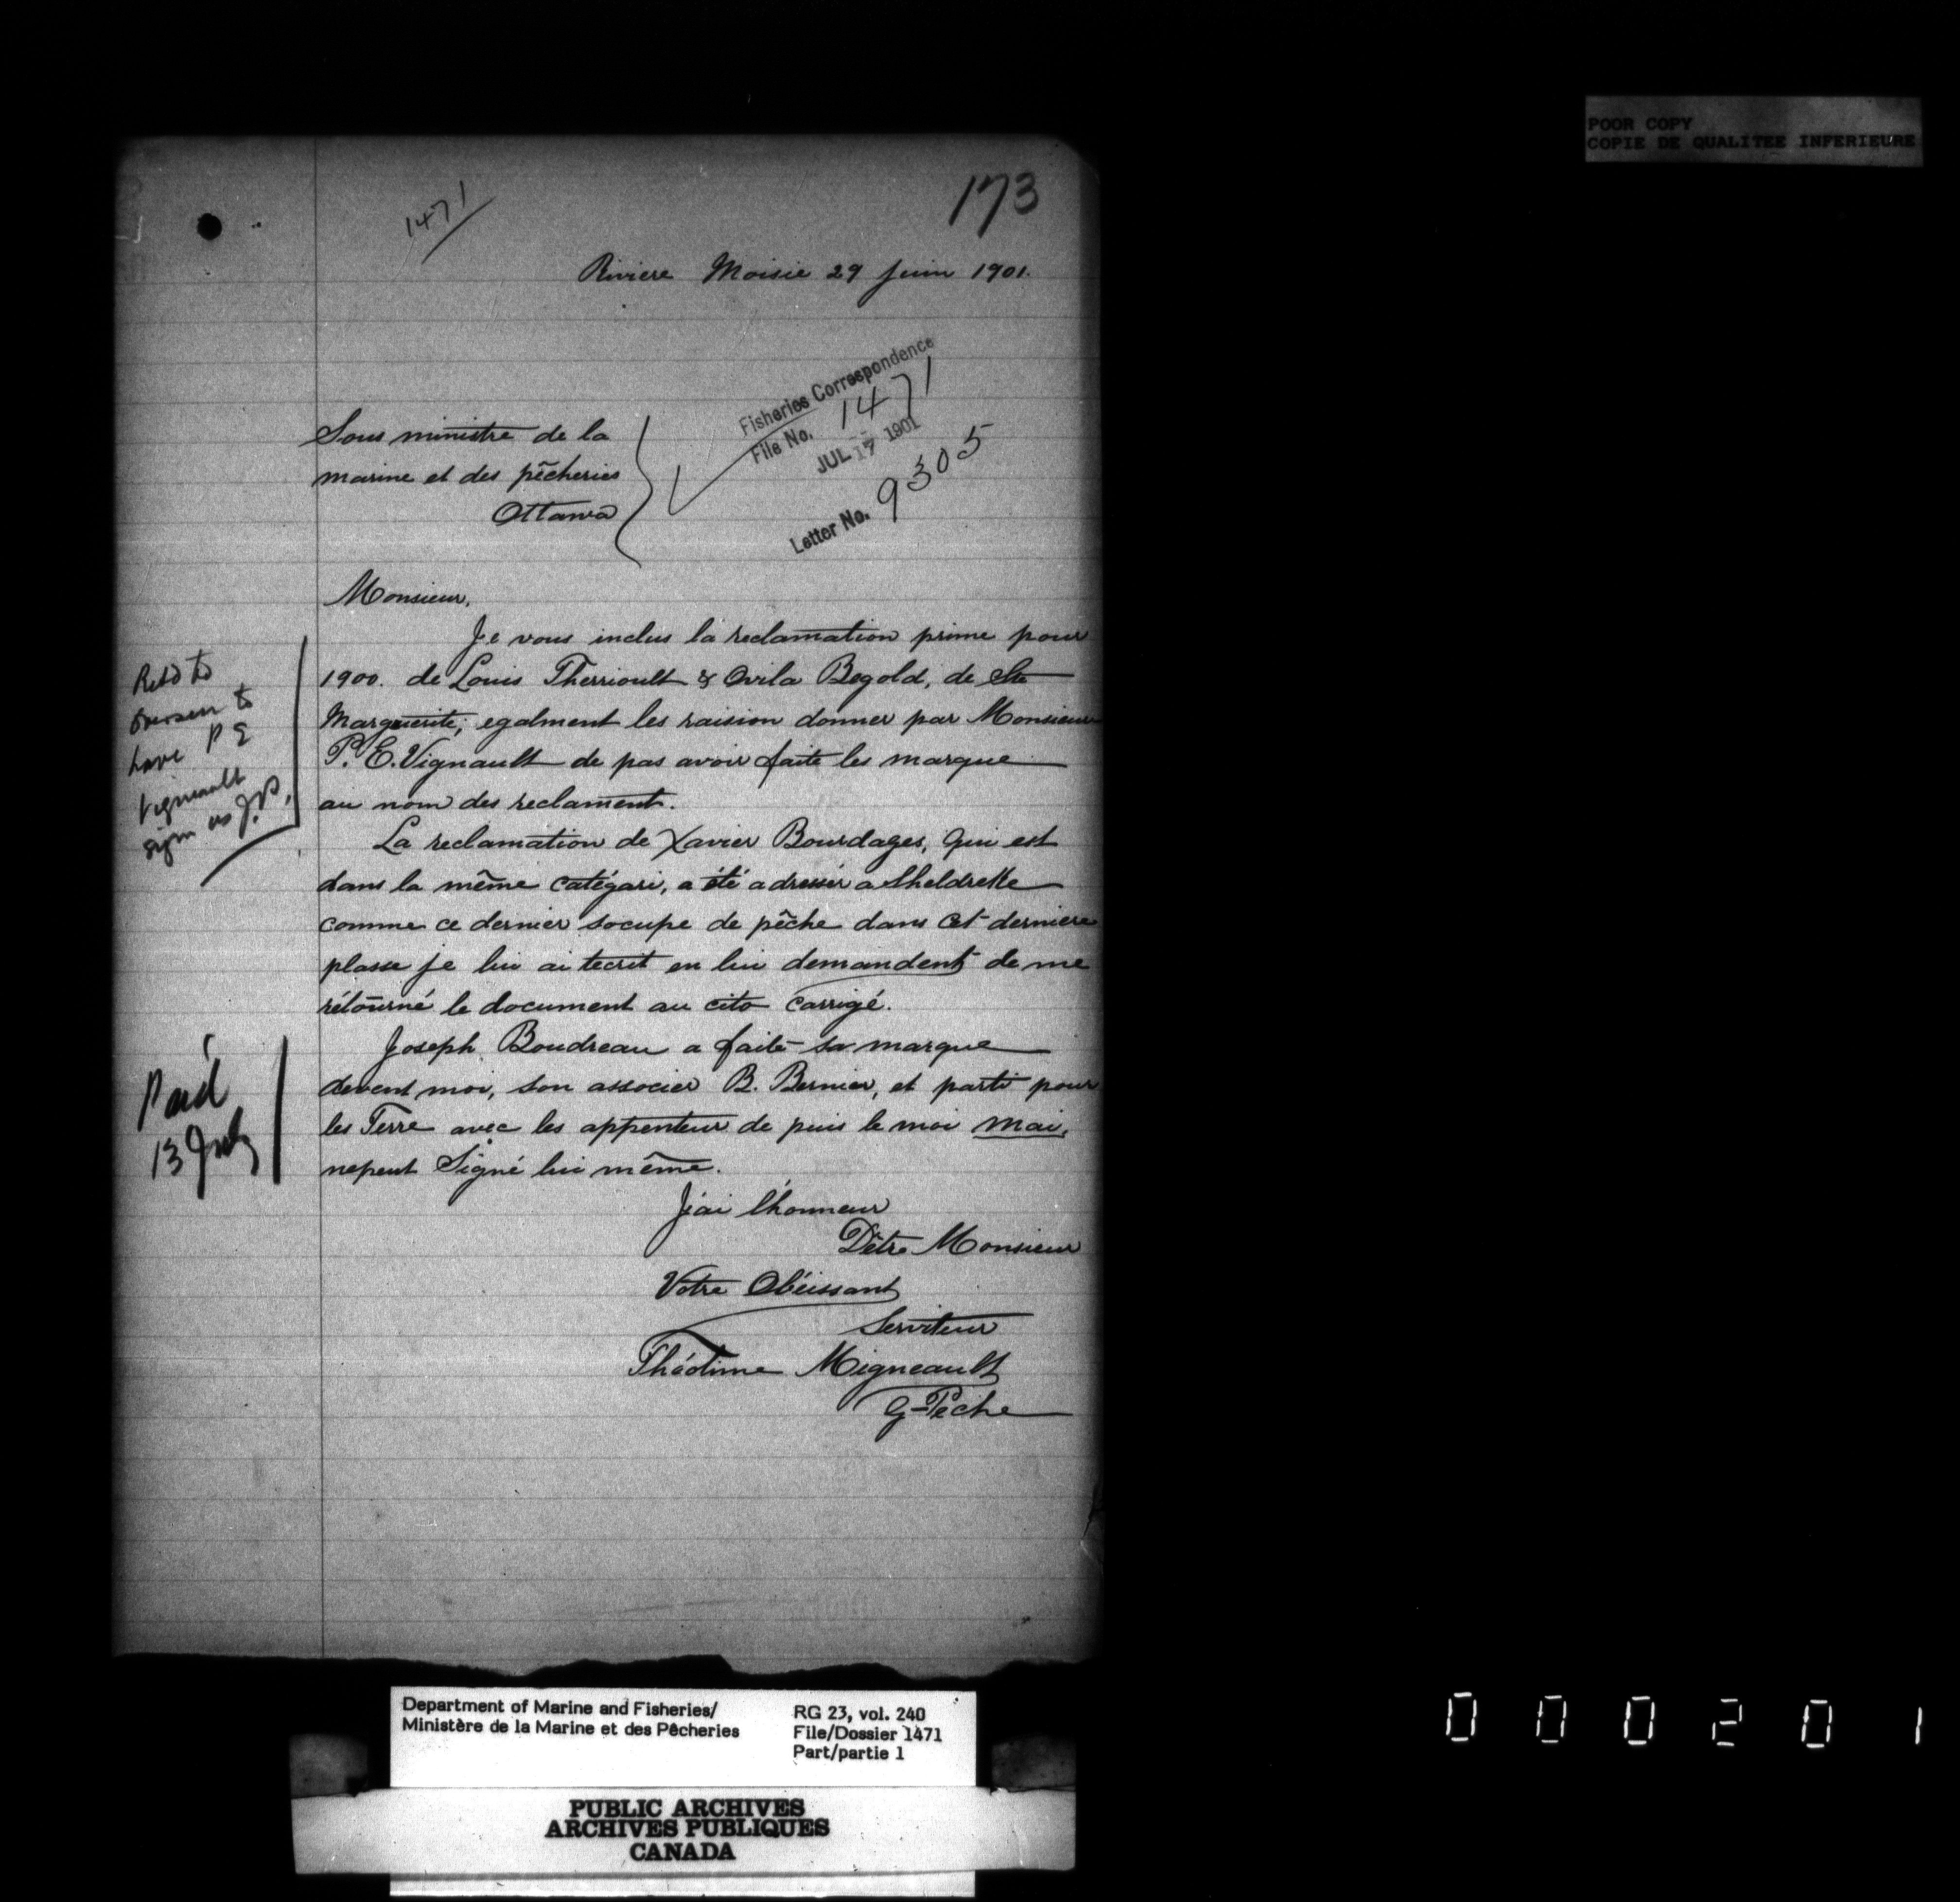 POOR COPY
COPIE DE QUALITEE INFERIEURE
173
1471
Riviere Moisie 29 Juin 1901.
Fisheries Correspondence
File No. 1471
JUL 17 1901
Letter No. 9305
Sous ministre de la
marine et des pêcheries
Ottawa
Monsieur,
Je vous inclus la reclamation prime pour
1900. de Louis Therrioult & Ovila Begold, de Ste
Marguerite; egalment les raision donner par Monsieur
P. E. Vignault de pas avoir faite les marque
au nom des reclament.
La reclamation de Xavier Bourdages, qui est
dans la même catégari, a été adressér a Sheldrette
comme ce dernier socupe de pêche dans cet derniere
plasse je lui ai tecrit en lui demandent de me
rétourné le document au cito carrigé.
Joseph Boudreau a faite sa marque
devent moi, son associer B. Bernier, et parti pour
les Terre avec les appenteur de puis le moi mai,
nepeut Signé lui même.
J'ai l'honneur
D'être Monsieur
Votre Obéissant
Serviteur
Théotime Migneault
G-Pêche
Retd to
have P E
Vigneault
sign as J.P.
Paid
13 July
Department of Marine and Fisheries/
Ministère de la Marine et des Pêcheries
RG 23, vol. 240
File/Dossier 1471
Part/partie 1
PUBLIC ARCHIVES
ARCHIVES PUBLIQUES
CANADA
000201